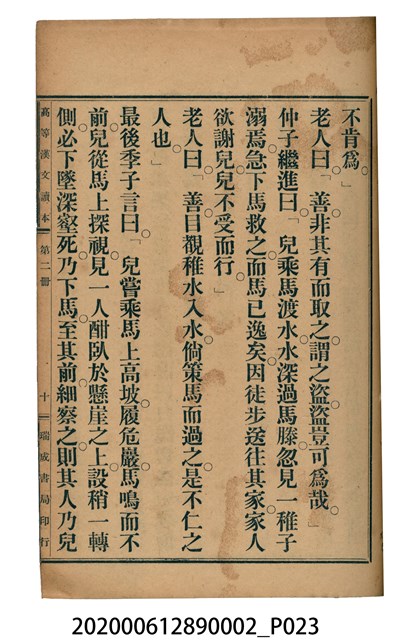 不肯爲。」
老人曰。「善非其有而取之。謂之盜。盜豈可爲哉。」
仲子繼進曰。「兒乘馬渡水。水深過馬膝。忽見一稚子
溺焉。急下馬救之。而馬已逸矣。因徒步送往其家。家人
欲謝兒。兒不受而行。」
老人曰。「善。目覩稚水入水。倘策馬而過之。是不仁之
人也。」
最後季子言曰。「兒嘗乘馬上高坡。履危巖。馬鳴而不
前。兒從馬上探視。見一人酣臥於懸崖之上。設稍一轉
側。必下墜深壑死。乃下馬。至其前。細察之。則其人乃兒
高等漢文讀本 第二冊 十 瑞成書局印行
202000612890002_P023